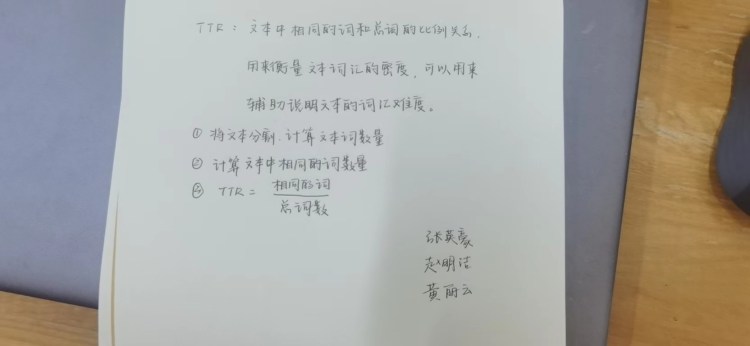 TTR：文本中相同的词和总词的比例关系.
用来衡量文本词汇的密度，可以用来
辅助说明文本的词汇难度。
① 将文本分割，计算文本词数量
② 计算文本中相同的词数量
③ TTR = 相同的词
总词数
张英豪
赵明洁
黄丽云